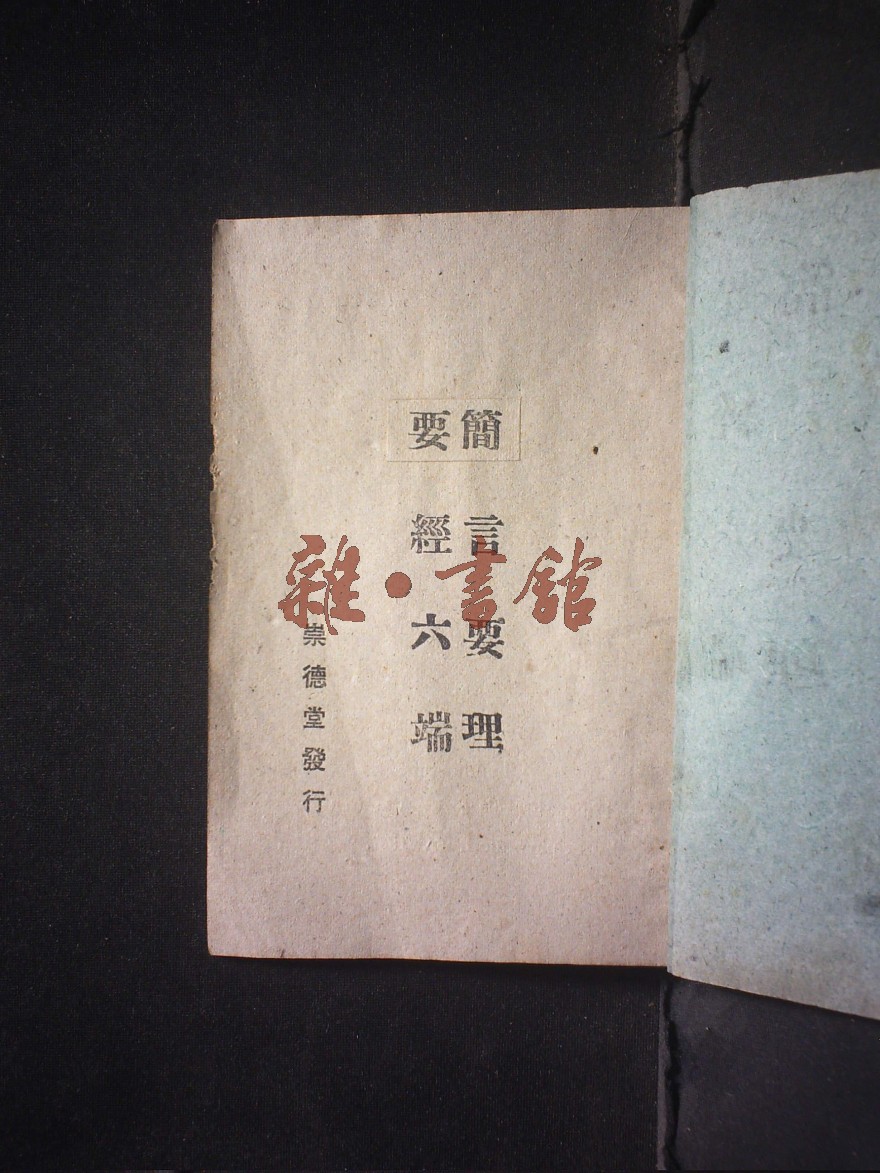 簡言要理
要經六端
崇德堂發行
雜·書館